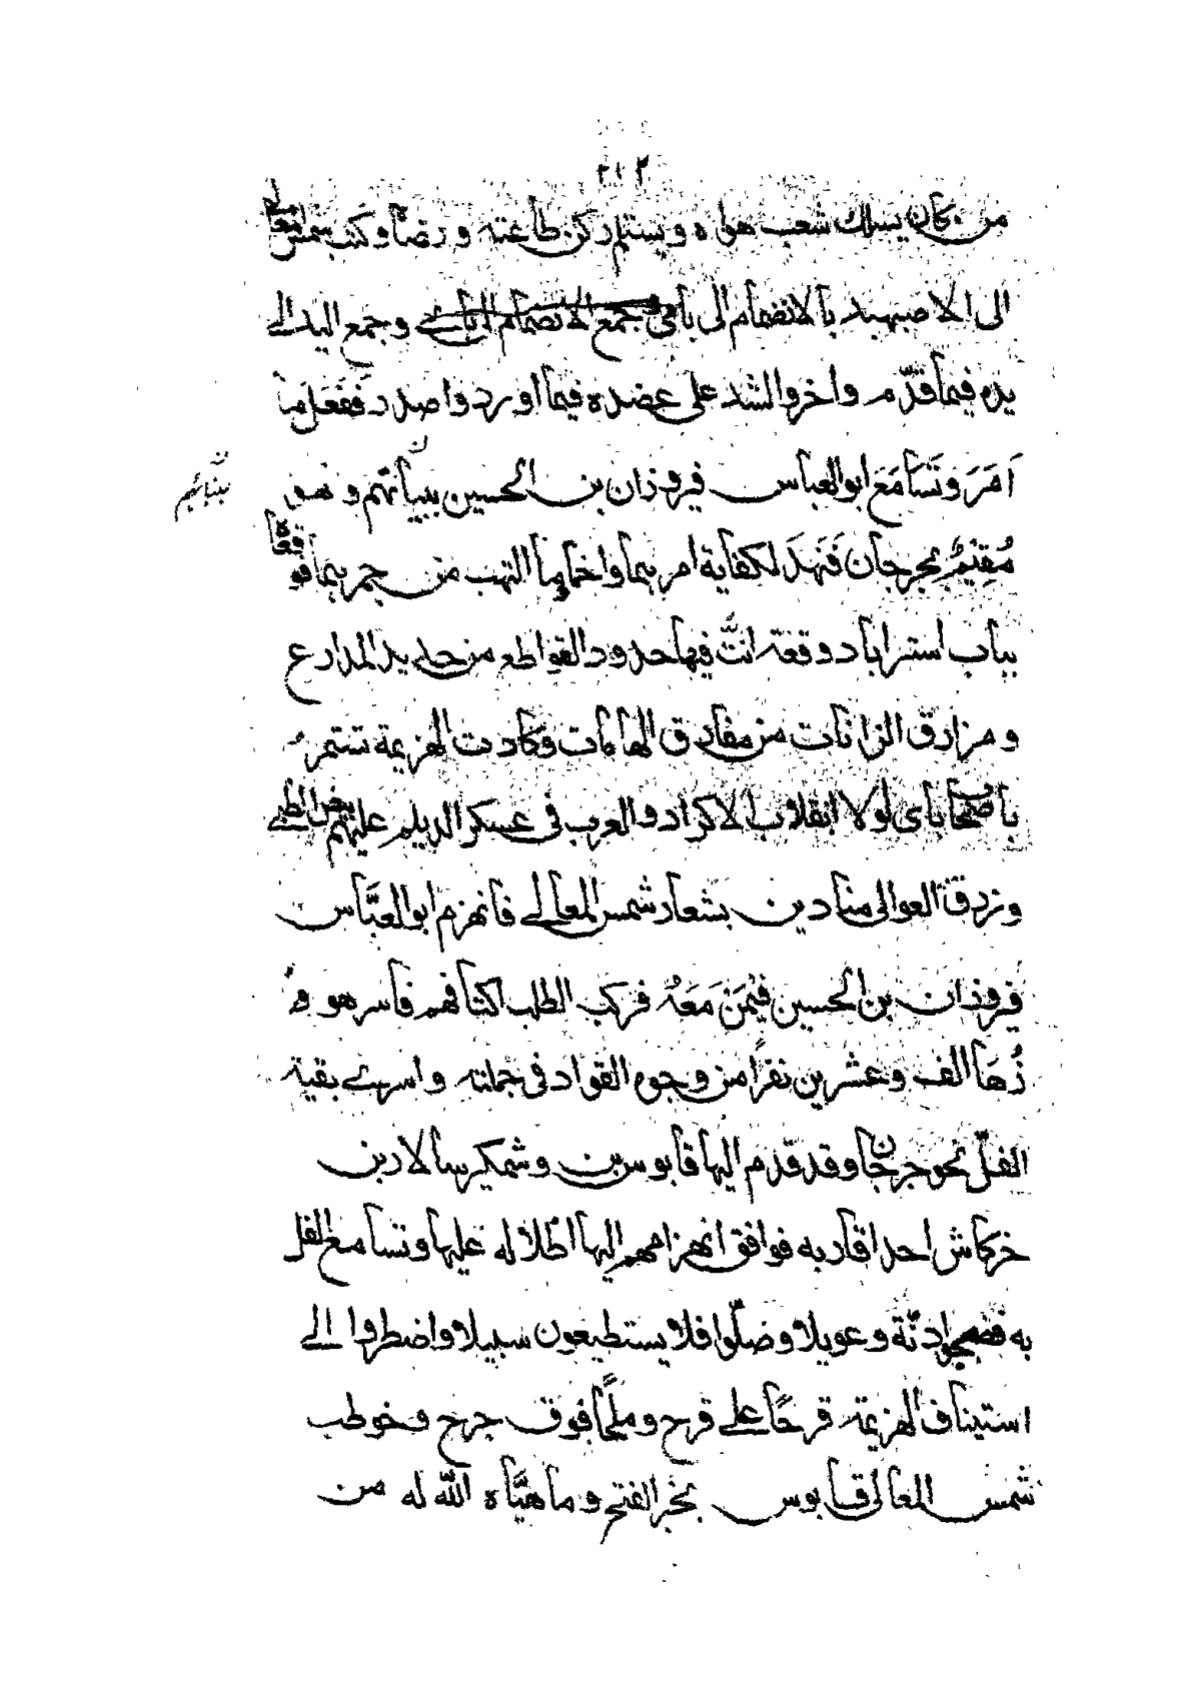 ٢١٢
من كان يسلك شعب هواه ويستلم ركن طاعته ورضاه وكتب شمس المعالى
الى الاصبهبد بالانضمام الى باتى وجمع اليد الى
يده فيما قدّم واخر والشد على عضده فيما اورد واصدر فَفَعَلَ ما
اَمَرَ وتَسَامَعَ ابو العباس فيروزان بن الحسين بنباتهم وهو
بنبائهم
مُقِيمٌ بجرجان فَنَهَدَ لكفاية امرهما واخماد ما التهب من جمرهما فوقعا
بباب استراباد وقعة انّت فيها حدود القواطع من حديد المدارع
ومزاريق الزانات من مفارق الهامات وكادت الهزيمة تستمر
باصحاب باى لولا انقلاب الاكراد والعرب فى عسكر الديلم عليهم
وزرق العوالى منادين بشعار شمس المعالى فانهزم ابو العبّاس
فيروزان بن الحسين فيمَنْ مَعَهُ فركب الطلب اكتافهم فاسر هو و
زُهَا الف وعشرين نفرًا من وجوه القواد فى جملته واسرى بقية
الفلّ نحو جرجان وقد قدم اليها قابوس بن وشمكير سالار بن
خركاش احد اقاربه فوافق انهزامهم اليها اطلاله عليها وتسامع الفل
به رنّة وعويلا وضلّوا فلا يستطيعون سبيلا واضطروا الى
استيناف الهزيمة قرحًا على قرح وملحًا فوق جرح وخوطب
شمس المعالى قابوس بخبر الفتح وما هيّاه الله له من